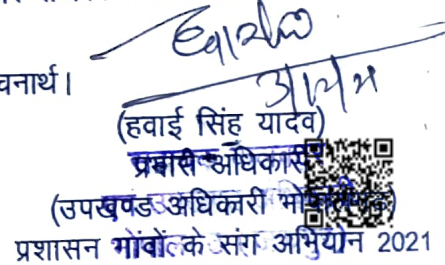 चनार्थ।
(हवाई सिंह यादव)
प्रभारी अधिकारी
(उपखण्ड अधिकारी
प्रशासन गांवों के संग अभियान 2021